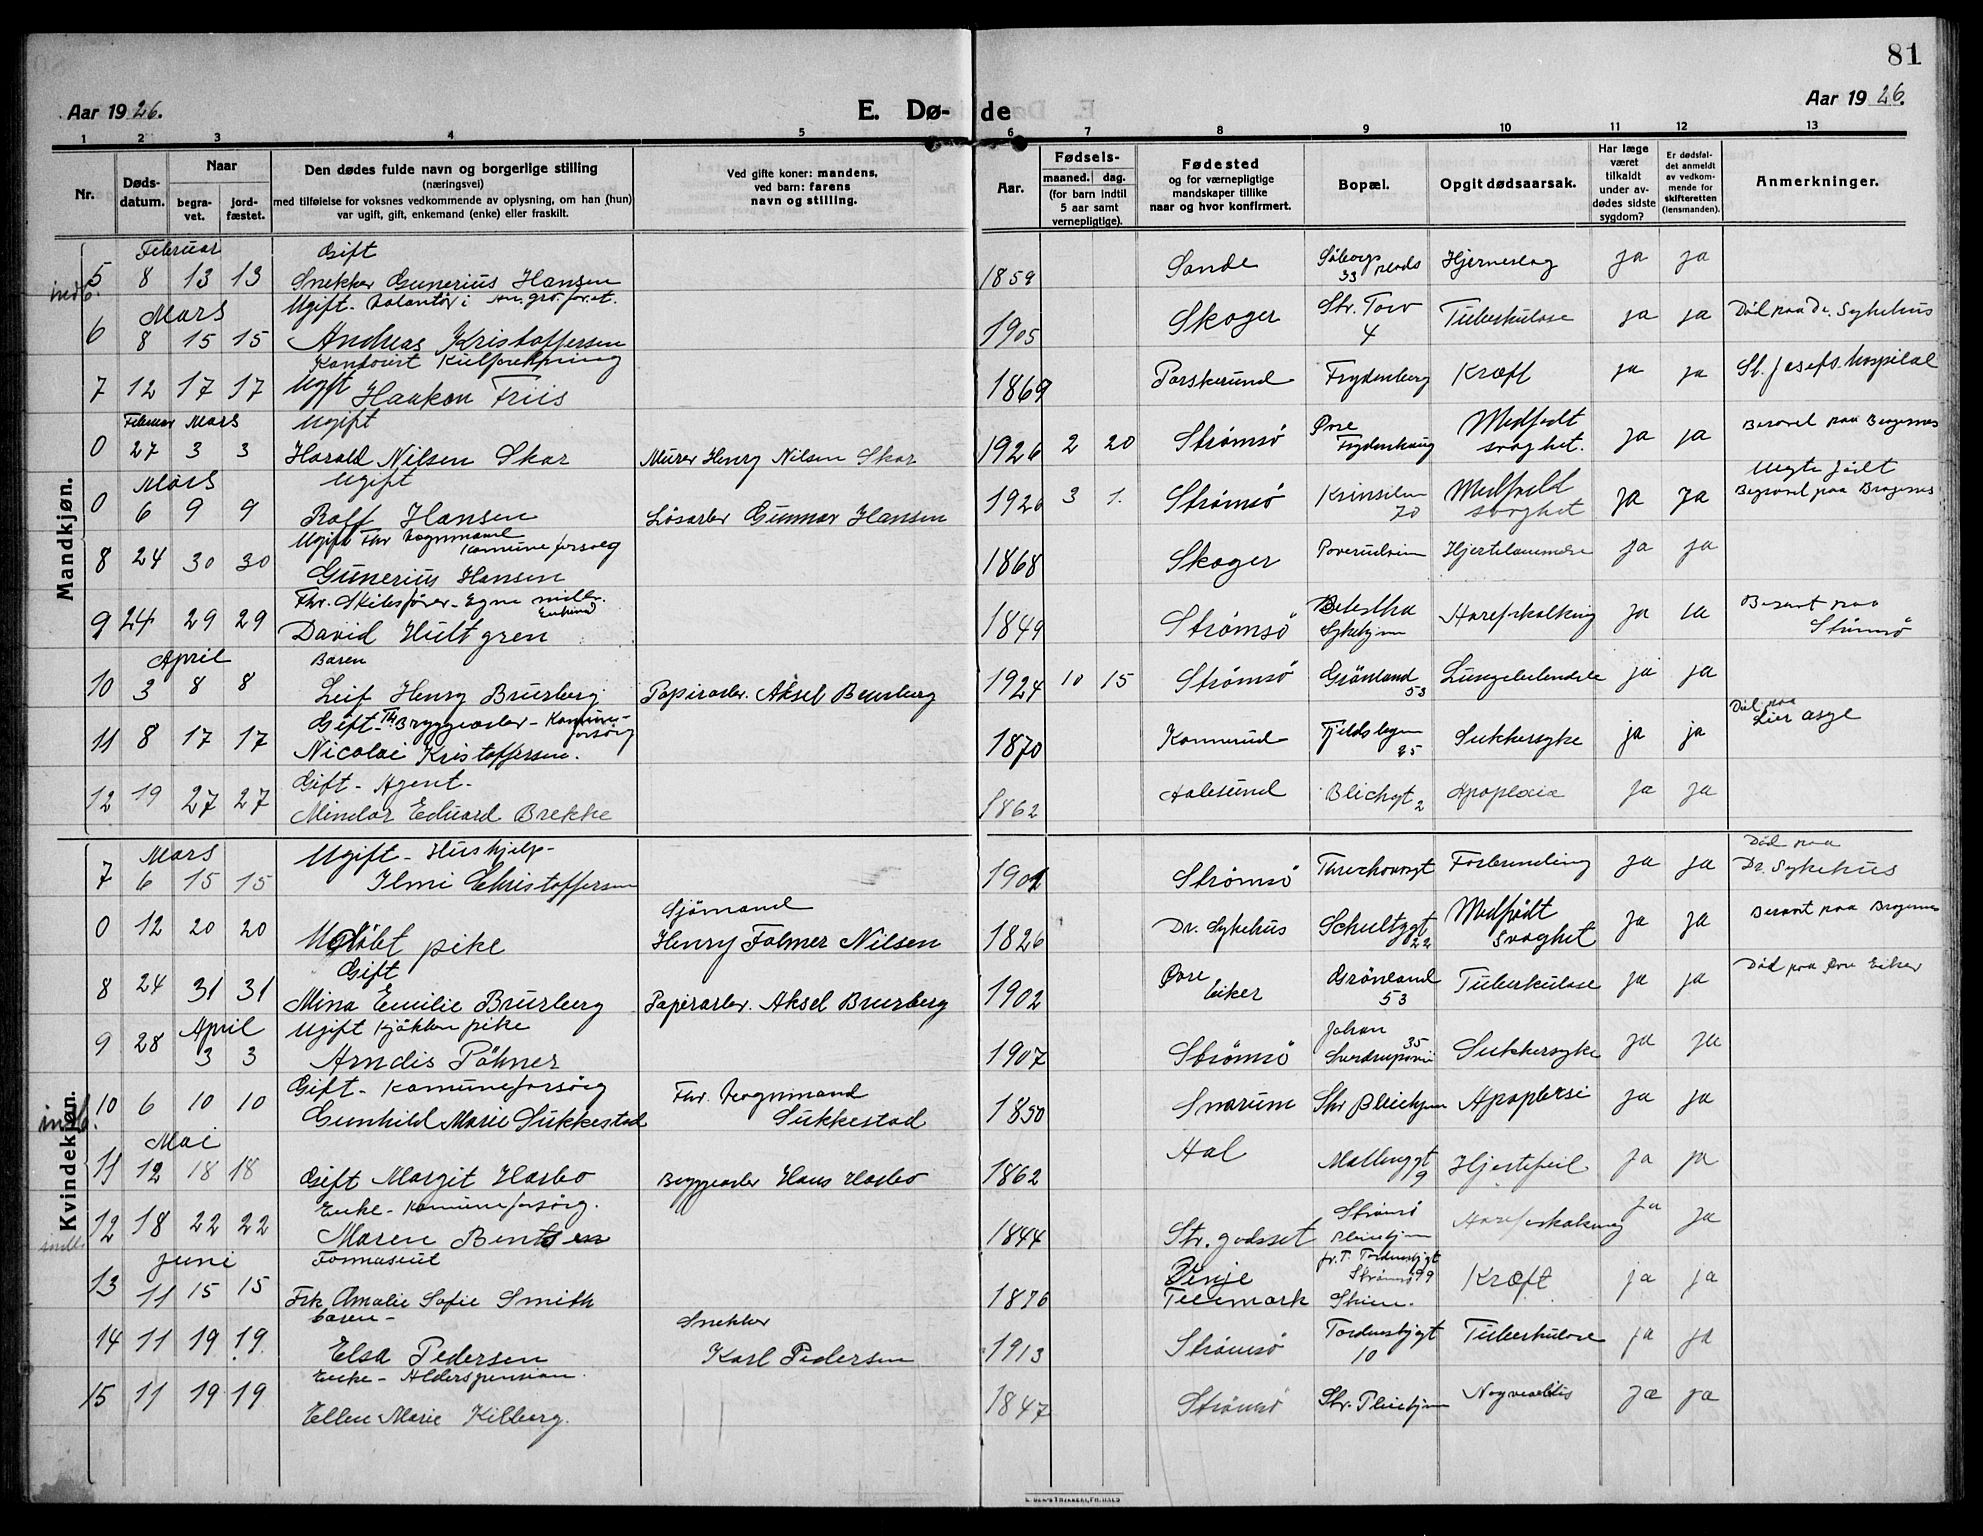 81
Aar 1926.
E. Dø-
de
Aar 1926.
1 2 3 4 5 6 7 8 9 10 11 12 13
Nr.
Døds-
datum.
Naar
begra-
vet.
jord-
fæstet.
Den dødes fulde navn og borgerlige stilling
(næringsvei)
med tilføielse for voksnes vedkommende av oplysning, om han (hun)
var ugift, gift, enkemand (enke) eller fraskilt.
Ved gifte koner: mandens,
ved barn: farens
navn og stilling.
Aar.
Fødsels-
maaned. dag.
(for barn indtil
5 aar samt
vernepligtige).
Fødested
og for værnepligtige
mandskaper tillike
naar og hvor konfirmert.
Bopæl.
Opgit dødsaarsak.
Har læge
været
tilkaldt
under av-
dødes sidste
sygdom?
Er dødsfal-
det anmeldt
av vedkom-
mende for
skifteretten
(lensmanden).
Anmerkninger.
Mandkjøn.
Februar
Gift
5 8 13 13 Snekker Gunerius Hansen 1859 Sande 33 Hjerneslag ja ja
Mars
Ugift
6 8 15 15 Andreas Kristoffersen 1905 Skoger Str. Torv 4 Tuberkulose ja ja Død paa Dr. Sykehus
Kontorist
7 12 17 17 Ugift Haakon Friis 1869 Porskerund Frydenberg Kræft ja ja St. Josefs Hospital
Februar Mars
Ugift
0 27 3 3 Harald Nilsen Skar Murer Henry Nilsen Skar 1926 2 20 Strømsø Øvre Frydenhaug Medfødt svaghet. ja ja paa Bragernes
Mars
Ugift
0 6 9 9 Rolf Hansen Løsarbr Gunnar Hansen 1926 3 1. Strømsø 70 Medfødt svaghet ja ja Uegte født
Begravet paa Bragernes
Ugift Fhv Vognmand
Komuneforsørg
8 24 30 30 Gunerius Hansen 1868 Skoger Hjertelammelse ja ja
Fhv. Skibsfører - Egne midler.
Enkemd
9 24 29 29 David Hultgren 1849 Strømsø Betestha Sykehjem Aareforkalkning ja ja paa
Strømsø
April
Baren
10 3 8 8 Leif Henry Brusberg Papirarbr. Aksel Brusberg 1924 10 15 Strømsø Grønland 53 Lungebetendelse ja ja
Gift - Fhv Bryggearbr - Komunes-
forsørg
11 8 17 17 Nicolai Kristoffersen. 1870 Konnerud 25 Sukkersyke ja ja Død paa
Lier asyl
Gift - Agent -
12 19 27 27 Mindor Eduard Brekke 1862 Aalesund Blichgt 2 Apoplexie ja ja
Kvindekjøn.
Mars
Ugift - Hushjelp -
7 6 15 15 Ilmi Christoffersen 1901 Strømsø Forbrænding ja ja Død paa
Dr. Sykehus
Sjømand
0 12 20 20 Udøbt pike Henry Folmer Nilsen 1826 Dr. Sykehus Schultzgt 22 Medfødt svaghet ja ja paa Bragernes
Gift
8 24 31 31 Mina Emilie Brusberg Papirarbr. Aksel Brusberg 1902 Øvre Eiker Grønland 53 Tuberkulose ja ja Død paa Øvre Eiker
April
Ugift kjøkken pike
9 28 3 3 Arndis Pöhner 1907 Strømsø Johan Sverdrupsvei 35 Sukkersyke ja ja
Gift - Komuneforsørg
Fhv. Vognmand
10 6 10 10 Gunhild Marie Sukkestad Sukkestad 1850 Snarum Str Pleiehjem Apoplexi ja ja
Mai
11 12 18 18 Gift Margit Hasbo Bryggearbr Hans Hasbo 1862 Hol 19 Hjertefeil ja ja
Enke - Komuneforsørg.
12 18 22 22 Maren Bentsen 1844 Str. godset Strømsø Pleiehjem Aareforkalkning ja ja
Juni
13 11 15 15 Frk Amalie Sofie Smith 1876 Vinje Telemark Strømsø 99 Skien. Kræft ja ja
baren -
Snekker
14 11 19 19. Elsa Pedersen Karl Pedersen 1913 Strømsø Tordenskjgt 10 Tuberkulose ja ja
Enke - Alderspension.
15 11 19 19 Ellen Marie Kilberg. 1847 Strømsø Str. Pleiehjem ja ja